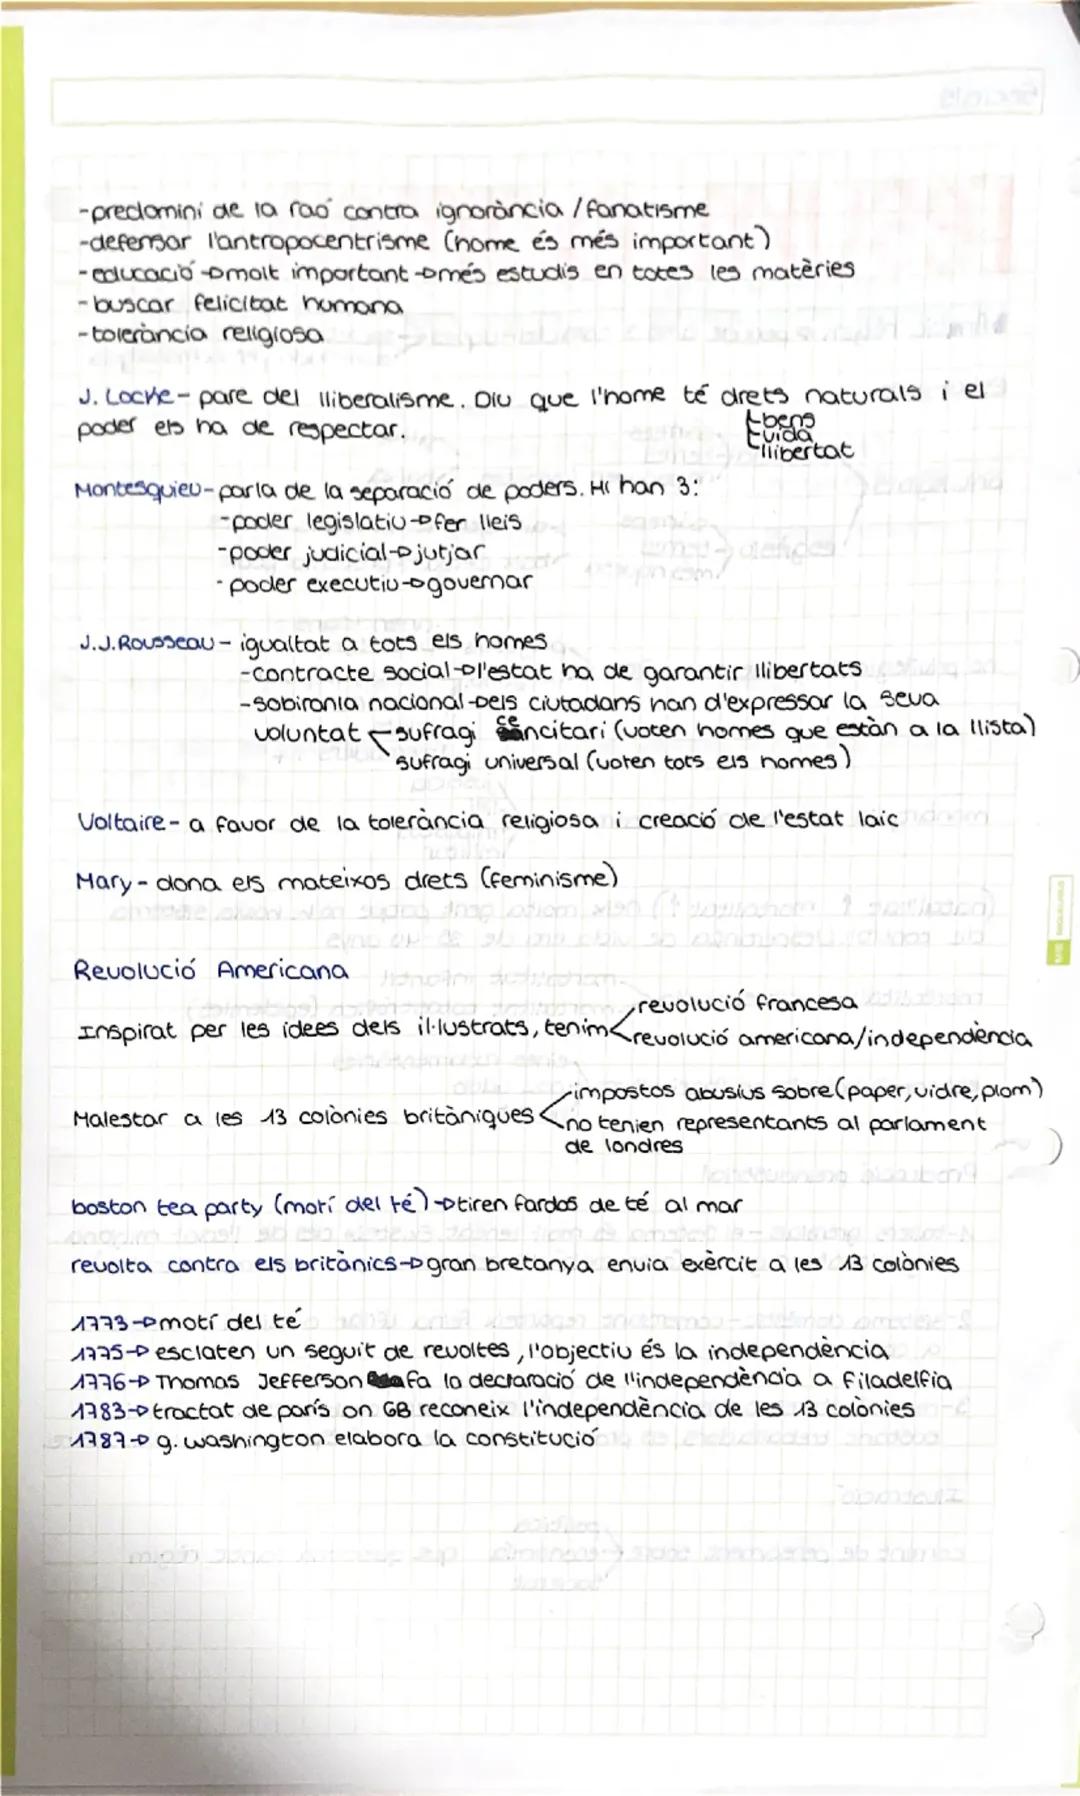 -predomini de la raó contra ignorància / fanatisme
-defensar l'antropocentrisme (home és més important)
-educació→molt important→més estudis en totes les matèries
-buscar felicitat humana
-tolerància religiosa
J. Locke - pare del lliberalisme. Diu que l'home té drets naturals i el
poder els ha de respectar.
-bens
-vida
-llibertat
Montesquieu-parla de la separació de poders. Hi han 3:
-poder legislatiu→fer lleis
-poder judicial→jutjar
-poder executiu→governar
J.J.Rousseau - igualtat a tots els homes
-contracte social→l'estat ha de garantir llibertats
-sobirania nacional→els ciutadans han d'expressar la seva
voluntat sufragi cencitari (voten homes que estàn a la llista)
sufragi universal (voten tots els homes)
Voltaire - a favor de la tolerància religiosa i creació de l'estat laic
Mary - dona els mateixos drets (feminisme)
Revolució Americana
revolució francesa
Inspirat per les idees dels il·lustrats, tenim revolució americana/independència
impostos abusius sobre (paper, vidre, plom)
Malestar a les 13 colònies britàniques no tenien representants al parlament
de londres
boston tea party (motí del té)→tiren fardos de té al mar
revolta contra els britànics→gran bretanya envia exèrcit a les 13 colònies
1773→motí del té
1775→esclaten un seguit de revoltes, l'objectiu és la independència
1776→Thomas Jefferson fa la declaració de l'independència a Filadelfia
1783→tractat de parís on GB reconeix l'independència de les 13 colònies
1787→g. washington elabora la constitució